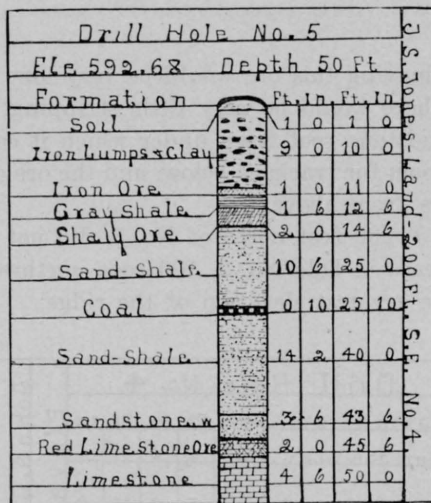 Drill Hole No. 5
Ele 592.68 Depth 50 Ft.
Formation Ft. In. Ft. In
Soil 1 0 1 0
Iron Lumps & Clay 9 0 10 0
Iron Ore 1 0 11 0
Gray Shale 1 6 12 6
Shaly Ore 2 0 14 6
Sand-Shale 10 6 25 0
Coal 0 10 25 10
Sand-Shale 14 2 40 0
Sandstone, w 3 6 43 6
Red Limestone Ore 2 0 45 6
Limestone 4 6 50 0
J. S. Jones Land-200 ft. S.E. No. 4